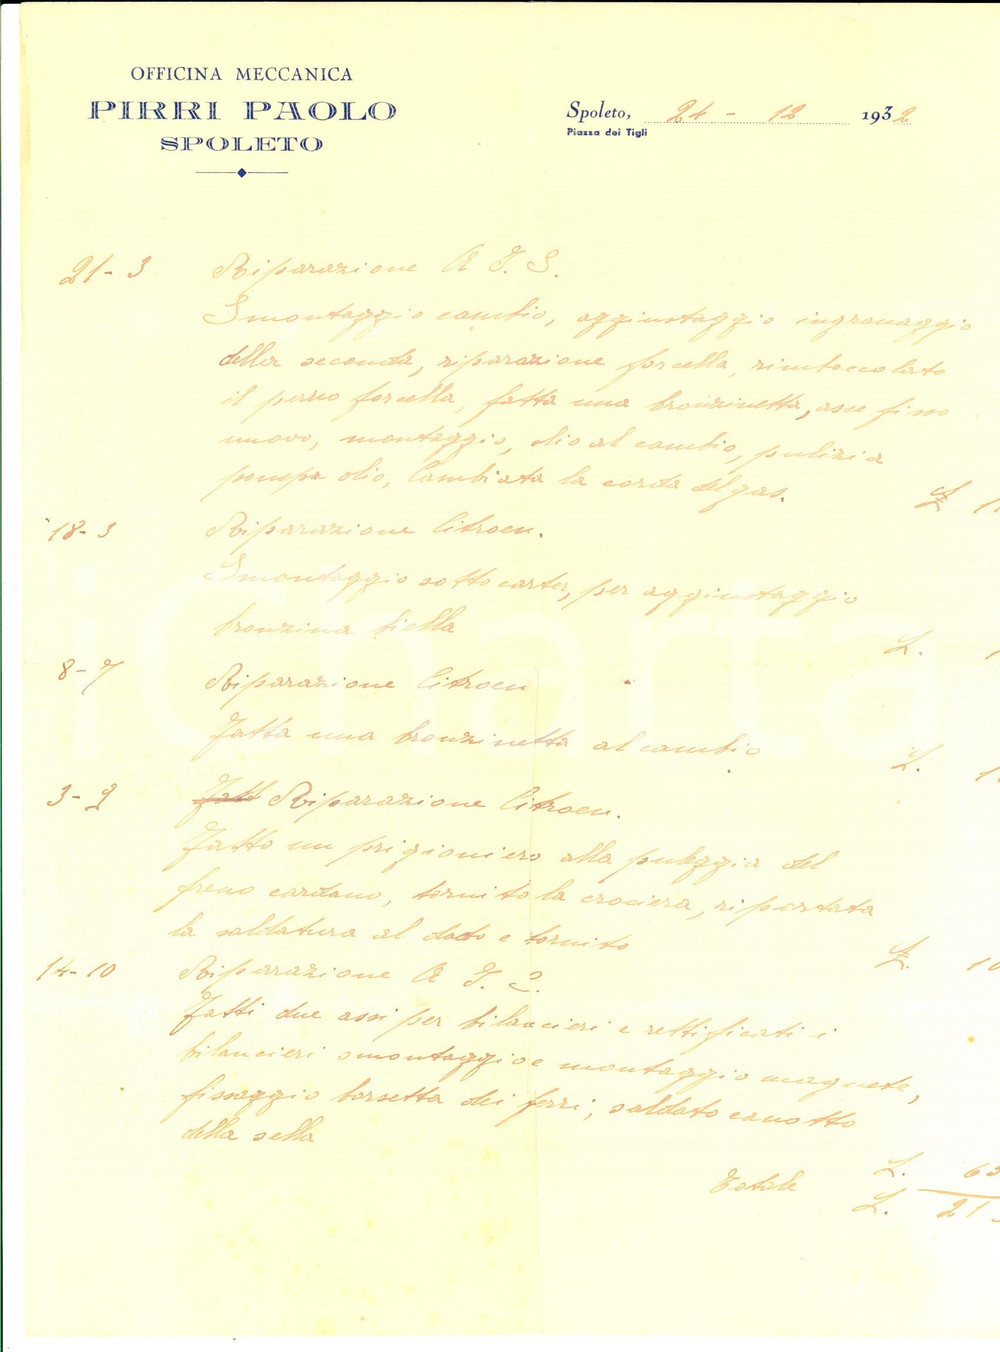 OFFICINA MECCANICA
PIRRI PAOLO
SPOLETO
Spoleto, 24 - 12 1932
Piazza dei Tigli
21-3 Riparazione A J. S.
Smontaggio cambio, aggiustaggio ingranaggio
della seconda, riparazione forcella, rimboccolato
il perno forcella, fatta una bronzinetta, asse fisso
nuovo, montaggio, olio al cambio, pulizia
pompa olio, Cambiata la corda del gas. £
18-3 Riparazione Citroen.
Smontaggio sotto carter, per aggiustaggio
bronzina biella L.
8-7 Riparazione Citroen
Fatta una bronzinetta al cambio L.
3-9 Fatt Riparazione Citroen.
Fatto un prigioniero alla puleggia del
freno cardano, tornito la crociera, riportata
la saldatura al dado e tornito £. 10
14-10 Riparazione A J. S.
Fatti due assi per bilancieri e rettificati i
bilancieri smontaggio e montaggio magnete,
fissaggio borsetta dei ferri, saldato canotto
della sella
L. 65
Totale L. 21
iCharta